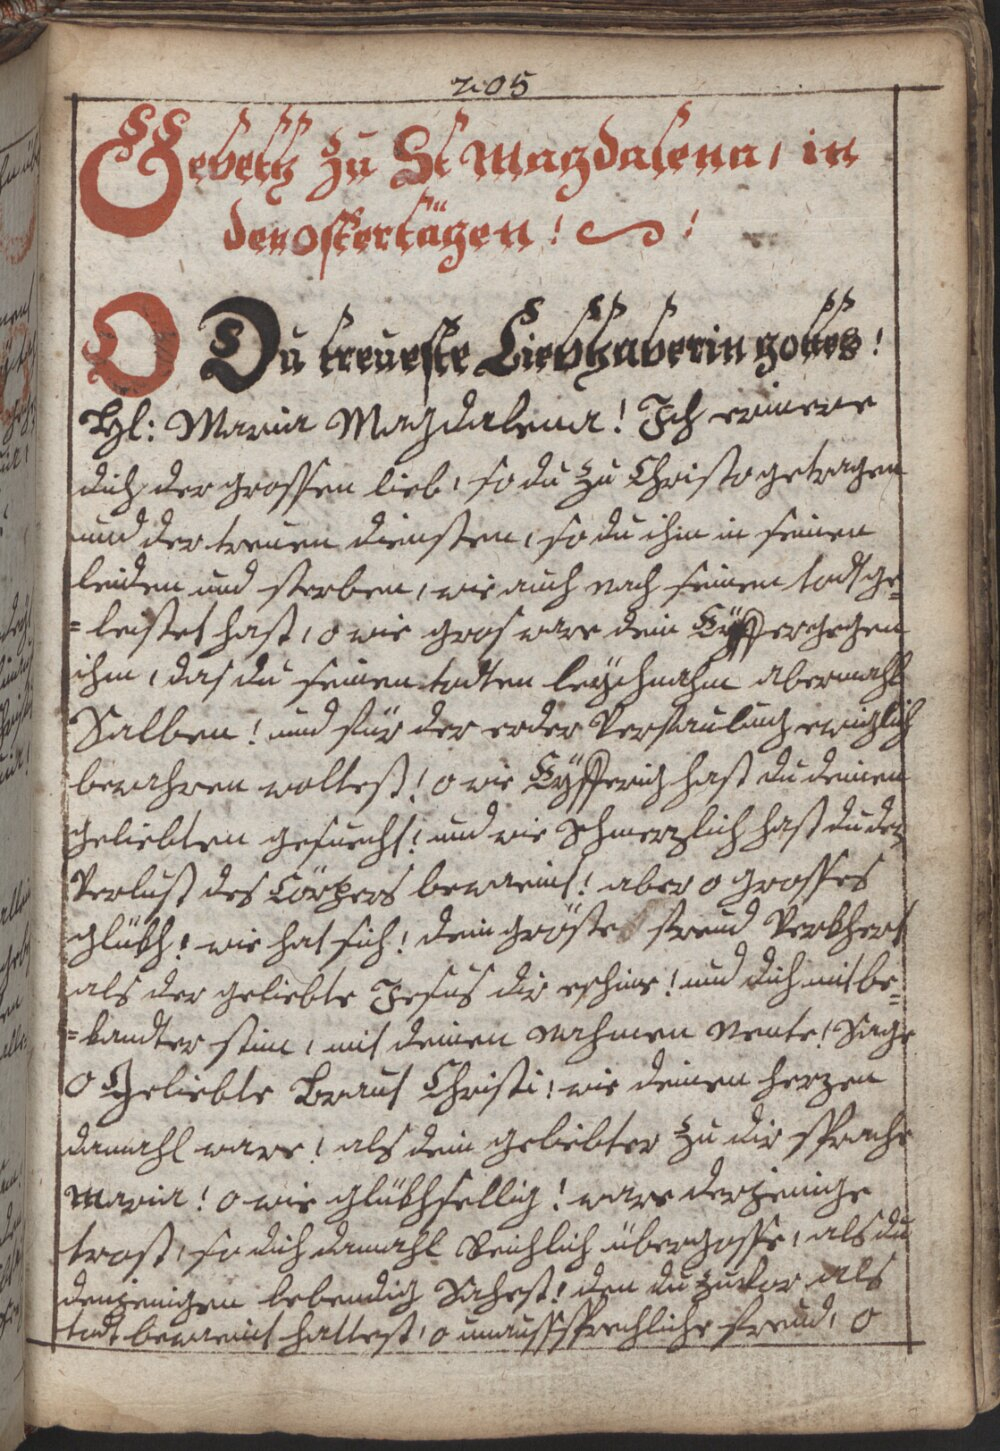 205
Gebett zu St Magdalena, in
den ostertägen! !
O Du treueste Liebhaberin gottes!
Hl: Maria Magdalena! Ich erinere
dich der grossen lieb, so du zu Christo getragen
und der treuen diensten, so du ihm in seinen
leiden und sterben, wie auch nach seinen todt ge-
=leistet hast, o wie gros ware dein Eyffer gegen
ihm, das du seinen todten leychnahm abermahl
Salben! und für der erder Verfaulung ewiglich
bewahren woltest! o wie Eyfferig hast du deinen
geliebten gesuecht! und wie schmerzlich hast du den
Verlust des Cörpers beweint! aber o grosses
glükh! wie hat sich! dein gröste freud Verkhert
als der geliebte Jesus dir eschine! und dich mit be-
=kandter stim, mit deinen Nahmen Nente! Sage
O Geliebte Braut Christi! wie deinen herzen
damahl ware! als dein geliebter zu dir sprache
Maria! o wie glükhsellig! ware derjenige
trost, so dich damahl Reichlich übergosse, als du
denjenigen lebendig Sahest! den du zuvor als
todt beweint hattest, o unaussprechliche freud, o